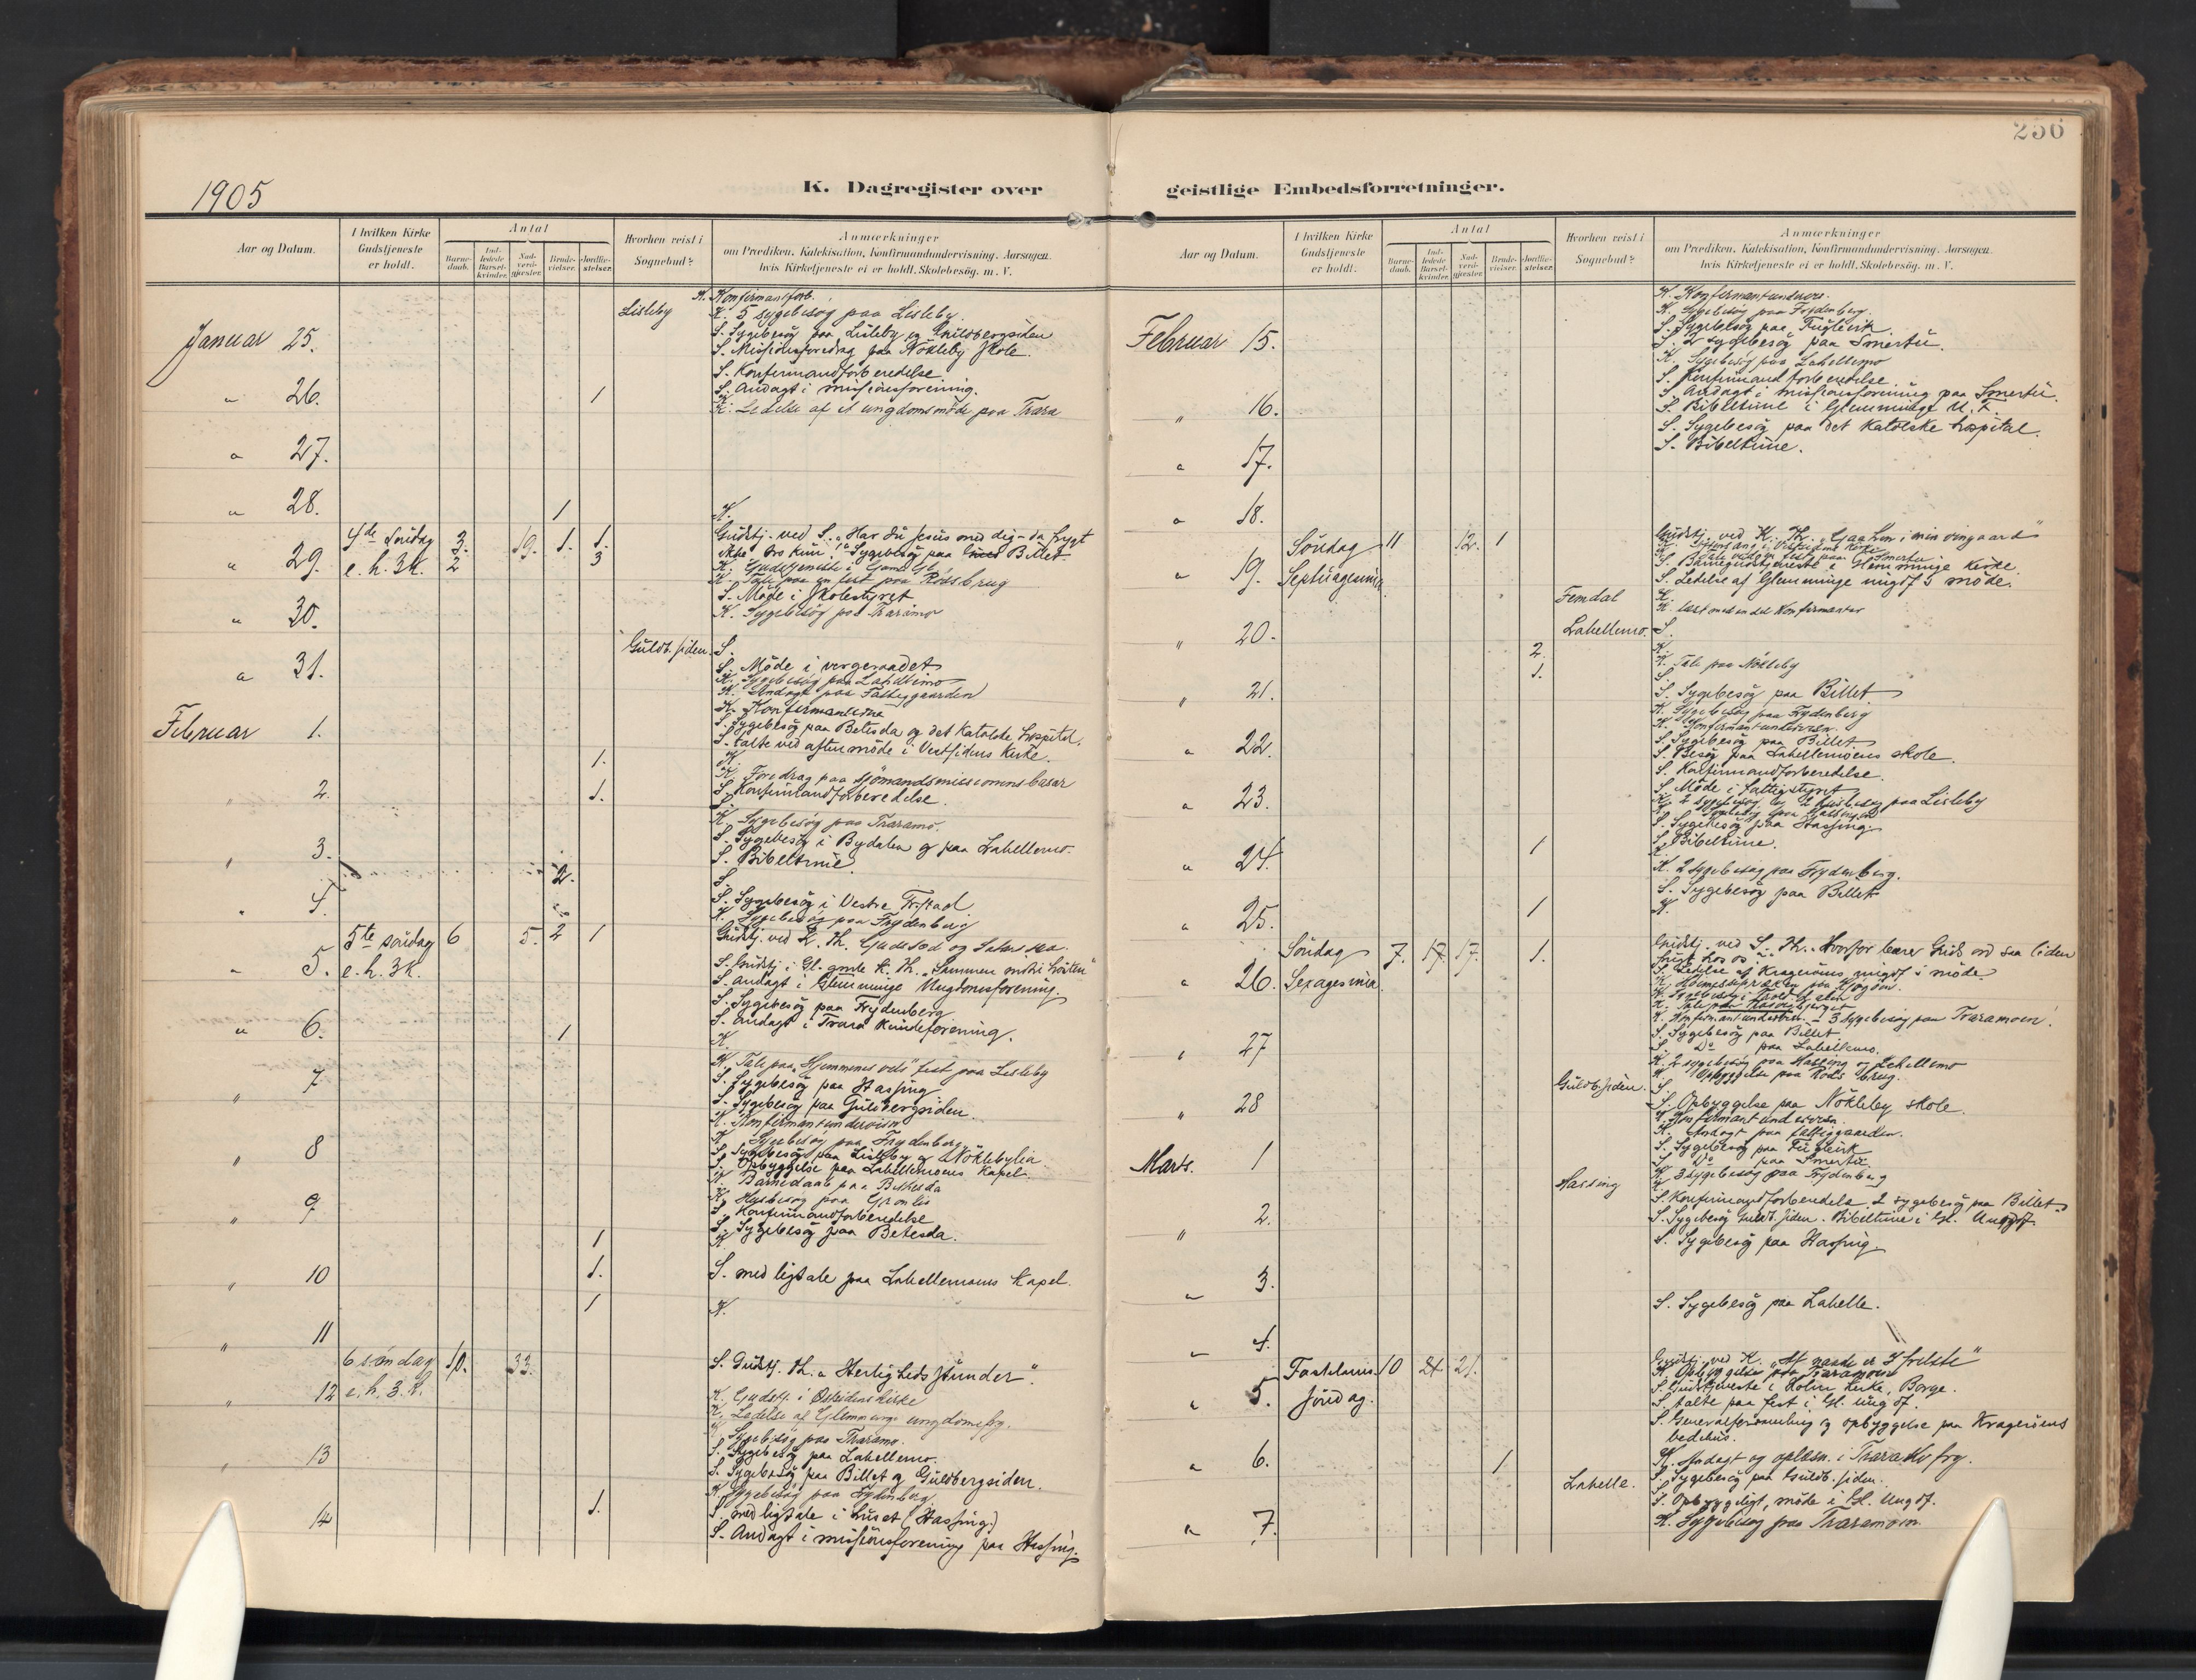 256
1905
K. Dagregister over
geistlige Embedsforretninger.
Aar og Datum.
I hvilken Kirke Gudstjeneste er holdt.
Antal
Barne-daab.
Ind-ledede Barsel-kvinder.
Nad-verd-gjester.
Brude-vielser.
Jordfæ-stelser.
Hvorhen reist i Sognebud?
Anmærkninger
om Prædiken, Katekisation, Konfirmandundervisning. Aarsagen,
hvis Kirketjeneste ei er holdt, Skolebesög. m. V.
K. Konfirmantforb.
Lisleby K. 5 sygebesøg paa Lisleby.
Januar 25. S. Sygebesøg paa Lisleby og Guldbergsiden
S. Missionsforedrag paa Nökleby Skole
S. Konfirmandforberedelse
" 26. 1 S. Andagt i missionsforening.
K. Ledelse af et ungdomsmöde paa Trara
" 27.
" 28. 1 K.
4de Söndag 3. 19. 1. 1. Gudstj. ved S. „Har du Jesus med dig – da frygt
" 29. e. h. 3K. 2 3 Sygebesøg paa Billet
K. Gudstjeneste i Gamle Gl.
K. Tale paa en fest paa Rödsbrug
S. Möde i Skolestyret
" 30. K. Sygebesøg paa Traramo
Guldb. siden S.
" 31. S. Möde i vergeraadet
K. Sygebesøg paa Labellmo
K. Andagt paa Fattiggaarden
K. Konfirmanterne
Februar 1. S. Sygebesøg paa Betesda og det Katolske hospital.
S. talte ved aftenmöde i Vestsidens Kirke.
1. K.
K. Foredrag paa Sjömandsmissionens basar
" 2. 1. S. Konfirmandforberedelse.
K. Sygebesøg paa Traramo.
" 3. S. Sygebesøg i Bydalen og paa Labellemo.
S. Bibeltime
2. S.
" 4. S. Sygebesøg i Vestre Fr.stad
K. Sygebesøg paa Frydenberg
5te söndag 6 5. 2 1 Gudstj. ved K. Th.
" 5. e. h. 3K. S. Gudstj. i Gl. gamle K. Th.
S. Andagt i Glemminge Ungdomsforening.
S. Sygebesøg paa Frydenberg
S. Andagt i Trara Kvindeforening.
" 6. 1 K.
K. Tale paa „Hjemmenes vels" fest paa Lisleby
" 7 S. Sygebesøg paa Hassing
S. Sygebesøg paa Guldbergsiden.
K. Konfirmantundervisn
K. Sygebesøg paa Frydenberg
" 8 S. Sygebesøg paa Lisleby og Nöklebylia
S. Opbyggelse paa Labellemoens Kapel.
K. Barnedaab paa Betesda
K. Husbesøg paa Grönli
" 9 S. Konfirmandforberedelse
S. Sygebesøg paa Betesda.
1 K.
" 10 1. S. med ligtale paa Labellemoens Kapel.
1 K.
" 11
6 söndag 10. 33. S. Gudstj. Th. „Herligheds Stunder".
" 12 e. h. 3. K. K. Gudstj. i Østsidens kirke
K. Ledelse af Glemminge ungdomsfg.
K. Sygebesøg paa Traramo.
" 13 S. Sygebesøg paa Labellemo.
S. Sygebesøg paa Billet og Guldbergsiden.
K. Sygebesøg paa Frydenberg.
" 14 1. S. med ligtale i huset (Hassing.)
S. Andagt i missionsforening paa Hassing.
Aar og Datum.
I hvilken Kirke Gudstjeneste er holdt.
Antal
Barne-daab.
Ind-ledede Barsel-kvinder.
Nad-verd-gjester.
Brude-vielser.
Jordfæ-stelser.
Hvorhen reist i Sognebud?
Anmærkninger
om Prædiken, Katekisation, Konfirmandundervisning. Aarsagen,
hvis Kirketjeneste ei er holdt, Skolebesög. m. V.
K. Konfirmantunderv.
K. Sygebesøg paa Frydenberg.
S. Sygebesøg paa Fuglevik
Februar 15. S. 2 sygebesøg paa Smertu.
K. Sygebesøg paa Labellemo
S. Konfirmandforberedelse
S. Andagt i missionsforening paa Smertu.
" 16. S. Bibeltime i Glemminge U. F.
S. Sygebesøg paa det Katolske hospital.
S. Bibeltime.
" 17.
" 18.
Söndag 11 12. 1 Gudstj. ved K. Th. „Gaa hen i min vingaard"
" 19. Septuagesima S. Barnegudstjeneste i Glemminge Kirke.
S. Ledelse af Glemminge ungdf.s möde.
Femdal K.
K. læst med en del Konfirmanter
" 20. Labellemo. S.
2. K.
K. Tale paa Nökleby
1. S.
" 21. S. Sygebesøg paa Billet
K. Sygebesøg paa Frydenberg
K. Konfirmantundervisn.
" 22. S. Sygebesøg paa Billet
S. Besøg paa Labellemoens skole.
S. Konfirmandforberedelse.
" 23. S. Möde i fattigstyret
K. 2 sygebesøg og 2 husbesøg paa Lisleby
S. Sygebesøg paa Hassing.
1 S. Bibeltime.
" 24. K.
K. 2 sygebesøg paa Frydenberg.
S. Sygebesøg paa Billet
" 25. 1 K.
Söndag 7. 17. 17. 1. Gudstj. ved S. Th. „Hvorfor bærer Guds ord saa liden
" 26. Sexagesima frugt hos os".
S. Ledelse af Kragerøens ungdf.s möde
K. Konfirmantundervisn. – 3 Sygebesøg paa Traramoen.
S. Sygebesøg paa Billet
" 27 S. Do paa Labellemo.
K. 2 sygebesøg paa Hassing og Labellemo
K. Opbyggelse paa Röds brug.
Guldb. siden. S.
" 28 S. Opbyggelse paa Nökleby skole.
K. Konfirmantundervisn.
K. Andagt paa fattiggaarden.
S. Sygebesøg paa Fuglevik
Marts. 1 S. Do paa Smertu.
K. 3 sygebesøg paa Frydenberg
Hassing K.
S. Konfirmandforberedelse. 2 sygebesøg paa Billet
" 2. S. Sygebesøg Guldb. siden. Bibeltime i Gl. Ungdf.
S. Sygebesøg paa Hassing.
" 3.
S. Sygebesøg paa Labelle.
" 4.
Fastelavns 10 24 21. Gudstj. ved K. „Af naade er I frelste"
K. Opbyggelse paa Traramoen
" 5. söndag. S. Gudstjeneste i Holm Kirke, Borge.
S. talte paa fest i Gl. ungdf.
S. Generalforsamling og opbyggelse paa Kragerøens
bedehus.
" 6. 1 K. Andagt og oplæsn. i Trara Kv. frg.
Labelle. S. Sygebesøg paa Guldb. siden.
S. Opbyggeligt möde i Gl. Ungdf.
" 7. K. Sygebesøg paa Traramoen